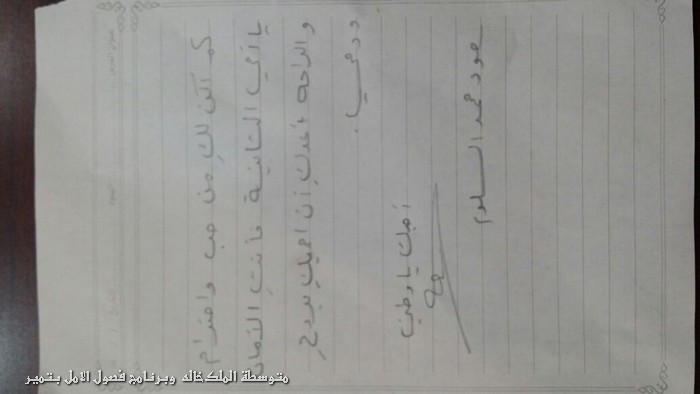 كم أكن لكِ من حب واحترام
يا أمي الثانية فأنتِ الأمان
والراحة أعدكِ أن أحميكِ بروحي
ودمي.
أحبك يا وطني
سعود محمد السلوم
متوسطة الملك خالد وبرنامج فصول الامل بتمير